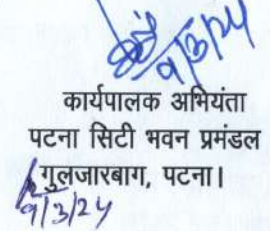 9/3/24
कार्यपालक अभियंता
पटना सिटी भवन प्रमंडल
गुलजारबाग, पटना।
9/3/24